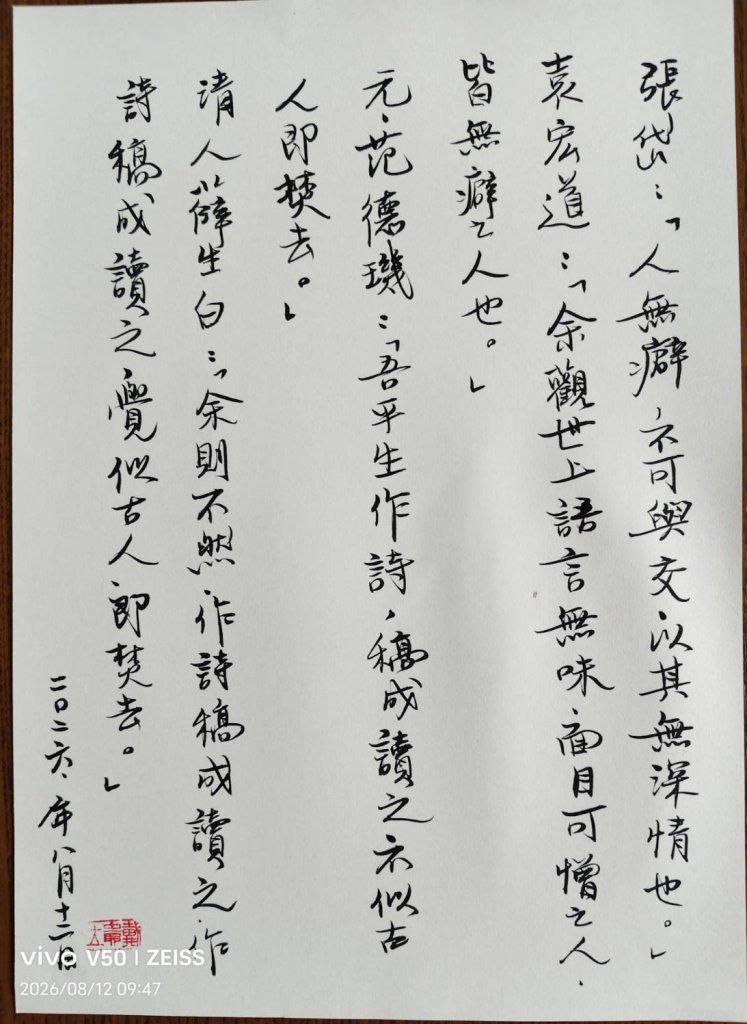 張岱：「人無癖，不可與交，以其無深情也。」
袁宏道：「余觀世上語言無味，面目可憎之人，
皆無癖之人也。」
元、范德璣：「吾平生作詩，稿成讀之，不似古
人即焚去。」
清人薛生白：「余則不然，作詩稿成讀之，作
詩稿成讀之，覺似古人，即焚去。」
二〇二六、年八月十二日
vivo V50 | ZEISS
2026/08/12 09:47